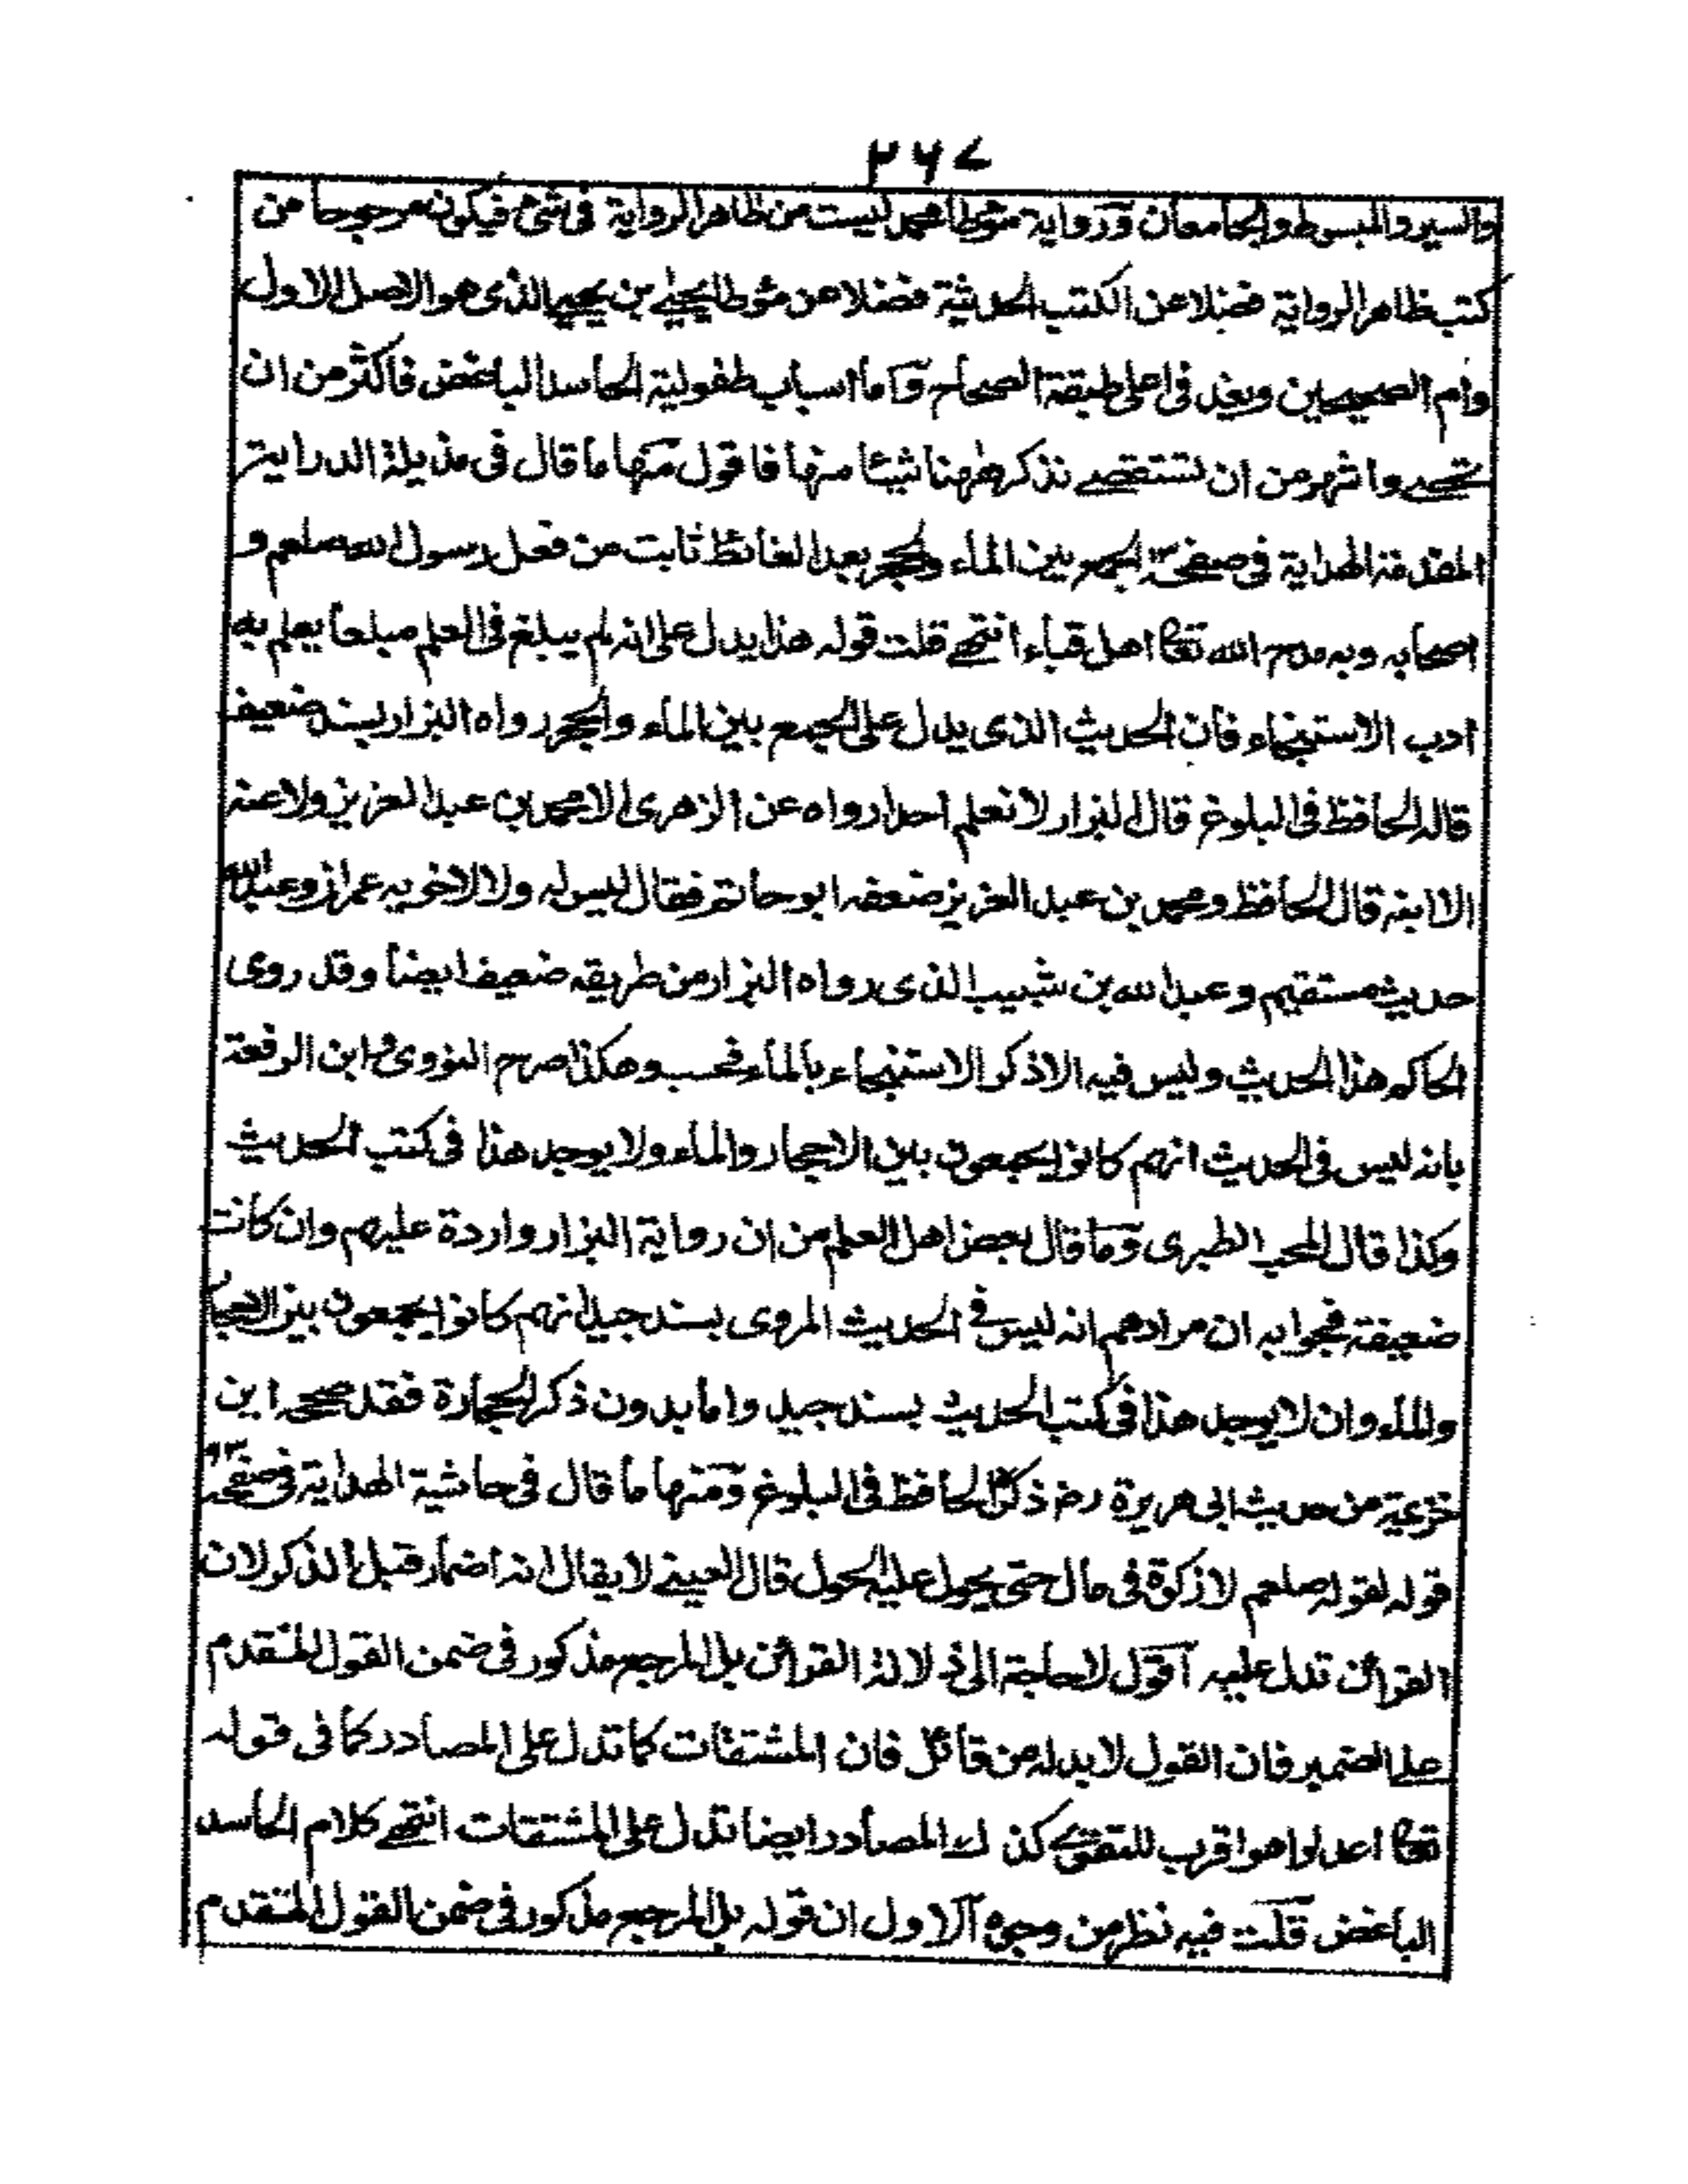 ٢٦٧
والسير والمبسوط والجامعان ورواية مؤطا محمد ليست من ظاهر الرواية فى شئ فيكون مرجوحا من
كتب ظاهر الرواية فضلا عن الكتب الحديثية فضلا عن مؤطا يحيى بن يحيى الذى هو الاصل الاول
وام الصحيحين ويعد فى اعلى طبقة الصحاح واما اسباب طفولية الحاسد الباغض فاكثر من ان
تحصى واشهر من ان تستقصى نذكر ههنا شيئا منها فاقول منها ما قال فى مذيلة الدراية
المقدمة الهداية فى صفحة الجمع بين الماء والحجر بعد الغائط ثابت من فعل رسول الله صلعم و
اصحابه وبه مدح الله تعالى اهل قباء انتهى قلت قوله هذا يدل على انه لم يبلغ فى العلم مبلغا يعلم به
ادب الاستنجاء فان الحديث الذى يدل على الجمع بين الماء والحجر رواه البزار بسند ضعيف
قاله الحافظ فى البلوغ قال البزار لا نعلم احدا رواه عن الزهرى الا محمد بن عبد العزيز ولا عنه
الا ابنه قال الحافظ ومحمد بن عبد العزيز ضعفه ابو حاتم فقال ليس له ولا لاخويه عمران وعبد الله
حديث مستقيم وعبد الله بن شبيب الذى رواه البزار من طريقه ضعيف ايضا وقد روى
الحاكم هذا الحديث وليس فيه الا ذكر الاستنجاء بالماء فحسب وهكذا صرح النووى وابن الرفعة
بانه ليس فى الحديث انهم كانوا يجمعون بين الاحجار والماء ولا يوجد هذا فى كتب الحديث
وكذا قال المحب الطبرى وما قال بعض اهل العلم من ان رواية البزار واردة عليهم وان كانت
ضعيفة فجوابه ان مرادهم انه ليس فى الحديث المروى بسند جيد انهم كانوا يجمعون بين الاحجار
والماء وان لا يوجد هذا فى كتب الحديث بسند جيد واما بدون ذكر الحجارة فقد صححه ابن
خزيمة من حديث ابى هريرة رض ذكره الحافظ فى البلوغ ومنها ما قال فى حاشية الهداية فى صفحة
قوله لقوله صلعم لا زكوة فى مال حتى يحول عليه الحول قال العينى لا يقال انه اضمار قبل الذكر لان
القرائن تدل عليه اقول لا حاجة الى دلالة القرائن بل المرجع مذكور فى ضمن القول المتقدم
على الضمير فان القول لا بد له من قائل فان المشتقات كما تدل على المصادر كما فى قوله
تعالى اعدلوا هو اقرب للتقوى كذلك المصادر ايضا تدل على المشتقات انتهى كلام الحاسد
الباغض قلت فيه نظر من وجوه الاول ان قوله بل المرجع مذكور فى ضمن القول المتقدم